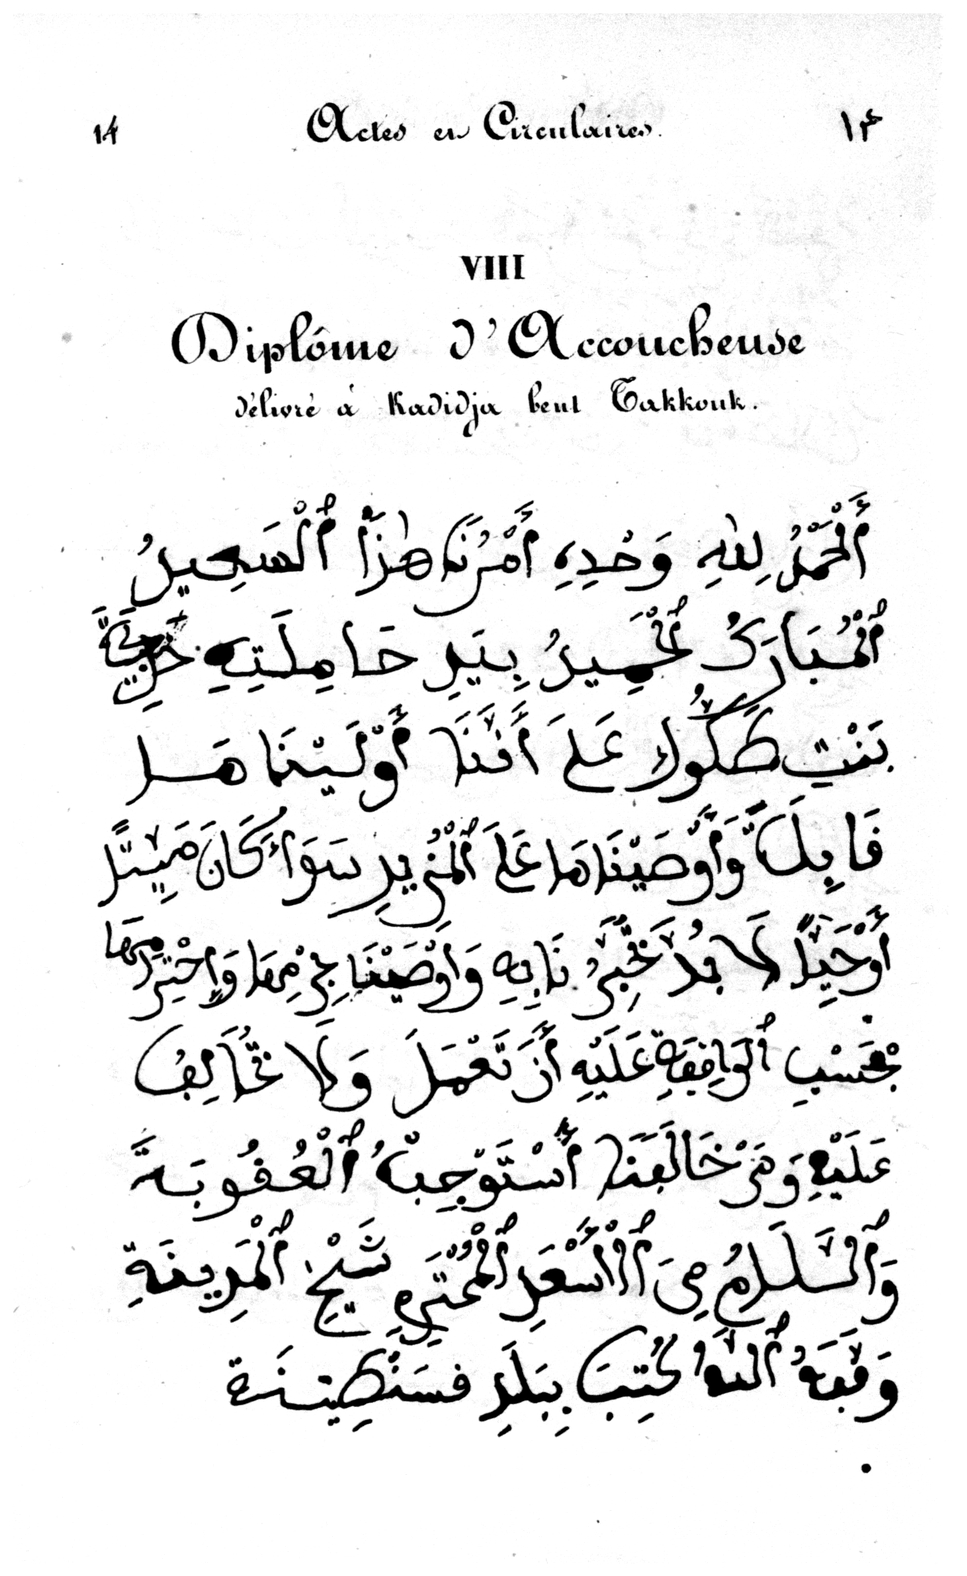 14 Actes et Circulaires. ١٤
VIII
Diplôme d'Accoucheuse
délivré à Kadidja bent Takkouk.
أَلْحَمْدُ لِلهِ وَحْدِهِ أَمْرُنَا هٰذَا ٱلسَعِيدُ
ٱلْمُبَارَكُ ٱلْحَمِيدُ بِيَدِ حَامِلَتِهِ خَدِيجَةَ
بَنْتِ طَكُّوك عَلَى أَنَّنَا أَوْلَيْنَاهَا
قَابِلَةً وَأَوَّصَيْنَاهَا عَلَى ٱلْمُزِيدِ سَوَاءَ كَانَ مَيِّتًا
أَوْحَيًّا لَا بُدَّ تُخَبِّرُنَا بِهِ وَأَوْصَيْنَا
بِحَسْبِ ٱلْوَافِقَةِ عَلَيْهِ أَنْ تَعْمَلَ وَلَا تُخَالِفُ
عَلَيْهِ وَمَنْ خَالَفَنَا أَسْتَوْجِبُ ٱلْعُقُوبَةَ
وَٱلسَّلَامُ مِنَ ٱلْأَسْعَدِ ٱلْمُحْتَرَمِ شَيْخِ ٱلْمَدِينَةِ
وَفَّقَهُ ٱللهُ كُتِبَ بِبَلَدِ قسَنْطِينَة